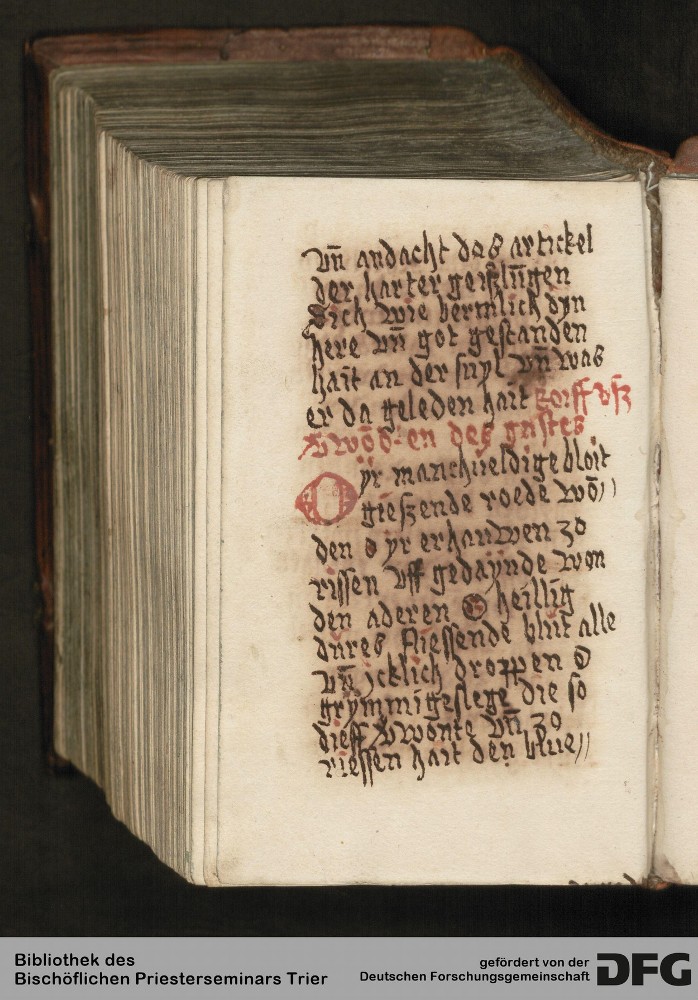 vn̄ andacht das artickel
der harter geißlūgen
Sich wie bermlich dyn
here vn̄ got gestanden
hait an der suyl vn̄ was
er da geleden hait
des
O yr manchueldige bloit
gieszende roede wō//
den O yr erhauwen zo
rissen vff gedaynde won
den aderen O heillig
dures fliessende blut alle
vn̄ ycklich droppen O
grymmigeslege die so
dieff wonte vn̄ zo
riessen hait den blue//
Bibliothek des
Bischöflichen Priesterseminars Trier
gefördert von der
Deutschen Forschungsgemeinschaft DFG